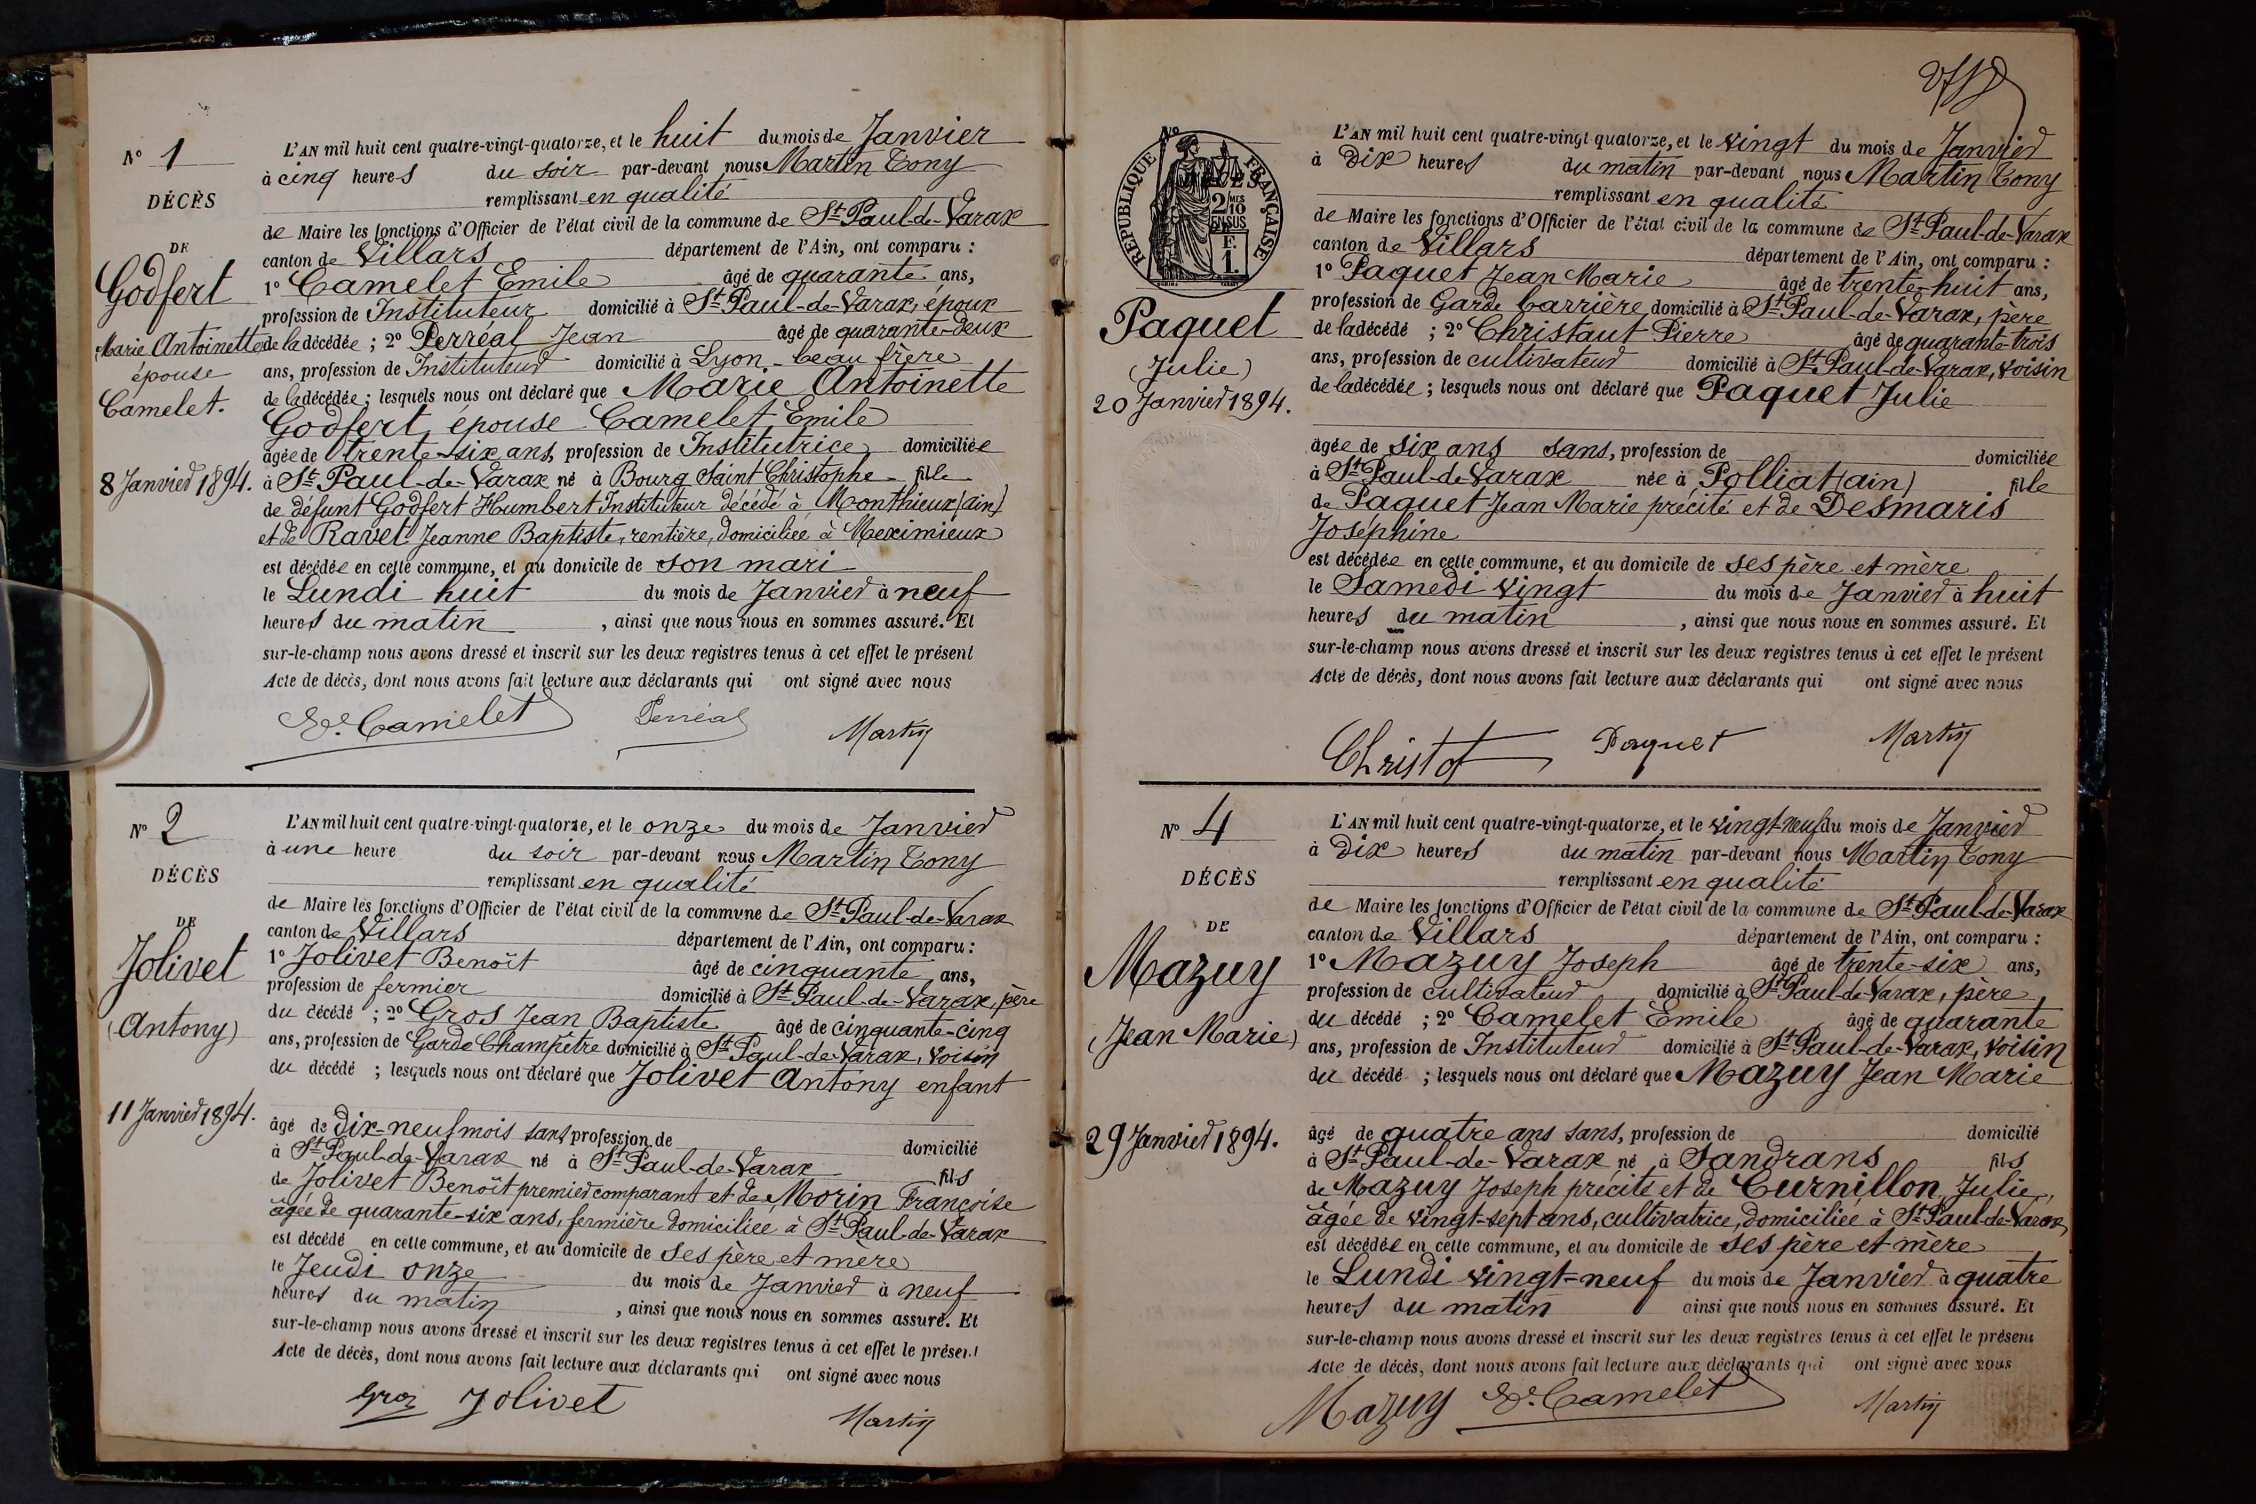 N° 1
DÉCÈS
DE
Godfert
Marie Antoinette
épouse
Camelet.
8 Janvier 1894.
L'AN mil huit cent quatre-vingt-quatorze, et le huit du mois de Janvier
à cinq heures du soir par-devant nous Martin Tony
remplissant en qualité
de Maire les fonctions d'Officier de l'état civil de la commune de St Paul-de-Varax
canton de Villars département de l'Ain, ont comparu :
1° Camelet Emile âgé de quarante ans,
profession de Instituteur domicilié à St Paul-de-Varax, époux
de la décédée ; 2° Perréal Jean âgé de quarante-deux
ans, profession de Instituteur domicilié à Lyon - beau frère
de la décédée ; lesquels nous ont déclaré que Marie Antoinette
Godfert, épouse Camelet Emile
âgée de trente-six ans, profession de Institutrice domiciliée
à St Paul-de-Varax né à Bourg Saint Christophe fille
de défunt Godfert Humbert Instituteur décédé à Monthieux (ain)
et de Ravet Jeanne Baptiste, rentière, domiciliée à Meximieux
est décédée en cette commune, et au domicile de son mari
le Lundi huit du mois de Janvier à neuf
heures du matin , ainsi que nous nous en sommes assuré. Et
sur-le-champ nous avons dressé et inscrit sur les deux registres tenus à cet effet le présent
Acte de décès, dont nous avons fait lecture aux déclarants qui ont signé avec nous
E. Camelet Perréal Martin
N° 2
DÉCÈS
DE
Jolivet
(Antony)
11 Janvier 1894.
L'AN mil huit cent quatre-vingt-quatorze, et le onze du mois de Janvier
à une heure du soir par-devant nous Martin Tony
remplissant en qualité
de Maire les fonctions d'Officier de l'état civil de la commune de St Paul-de-Varax
canton de Villars département de l'Ain, ont comparu :
1° Jolivet Benoît âgé de cinquante ans,
profession de fermier domicilié à St Paul-de-Varax, père
du décédé ; 2° Gros Jean Baptiste âgé de cinquante-cinq
ans, profession de Garde Champêtre domicilié à St Paul-de-Varax, voisin
du décédé ; lesquels nous ont déclaré que Jolivet Antony enfant
âgé de dix-neuf mois sans profession de domicilié
à St Paul-de-Varax né à St Paul-de-Varax fils
de Jolivet Benoît premier comparant et de Morin Françoise
âgée de quarante-six ans, fermière domiciliée à St Paul-de-Varax
est décédé en cette commune, et au domicile de ses père et mère
le Jeudi onze du mois de Janvier à neuf
heures du matin , ainsi que nous nous en sommes assuré. Et
sur-le-champ nous avons dressé et inscrit sur les deux registres tenus à cet effet le présent
Acte de décès, dont nous avons fait lecture aux déclarants qui ont signé avec nous
Gros Jolivet Martin
N°
RÉPUBLIQUE FRANÇAISE
2/10 MES
EN SUS
F.
1.
Paquet
(Julie)
20 Janvier 1894.
L'AN mil huit cent quatre-vingt-quatorze, et le vingt du mois de Janvier
à dix heures du matin par-devant nous Martin Tony
remplissant en qualité
de Maire les fonctions d'Officier de l'état civil de la commune de St Paul-de-Varax
canton de Villars département de l'Ain, ont comparu :
1° Paquet Jean Marie âgé de trente-huit ans,
profession de Garde barrière domicilié à St Paul-de-Varax, père
de la décédé ; 2° Christaut Pierre âgé de quarante-trois
ans, profession de cultivateur domicilié à St Paul-de-Varax, voisin
de la décédée ; lesquels nous ont déclaré que Paquet Julie
âgée de six ans sans, profession de domiciliée
à St Paul-de-Varax née à Polliat (ain) fille
de Paquet Jean Marie précité et de Desmaris
Joséphine
est décédée en cette commune, et au domicile de ses père et mère
le Samedi vingt du mois de Janvier à huit
heures du matin , ainsi que nous nous en sommes assuré. Et
sur-le-champ nous avons dressé et inscrit sur les deux registres tenus à cet effet le présent
Acte de décès, dont nous avons fait lecture aux déclarants qui ont signé avec nous
Christot Paquet Martin
N° 4
DÉCÈS
DE
Mazuy
(Jean Marie)
29 Janvier 1894.
L'AN mil huit cent quatre-vingt-quatorze, et le vingt-neuf du mois de Janvier
à dix heures du matin par-devant nous Martin Tony
remplissant en qualité
de Maire les fonctions d'Officier de l'état civil de la commune de St Paul-de-Varax
canton de Villars département de l'Ain, ont comparu :
1° Mazuy Joseph âgé de trente-six ans,
profession de cultivateur domicilié à St Paul-de-Varax, père
du décédé ; 2° Camelet Emile âgé de quarante
ans, profession de Instituteur domicilié à St Paul-de-Varax, voisin
du décédé ; lesquels nous ont déclaré que Mazuy Jean Marie
âgé de quatre ans sans, profession de domicilié
à St Paul-de-Varax né à Sandrans fils
de Mazuy Joseph précité et de Curnillon Julie,
âgée de vingt-sept ans, cultivatrice, domiciliée à St Paul-de-Varax,
est décédée en cette commune, et au domicile de ses père et mère
le Lundi vingt-neuf du mois de Janvier à quatre
heures du matin ainsi que nous nous en sommes assuré. Et
sur-le-champ nous avons dressé et inscrit sur les deux registres tenus à cet effet le présent
Acte de décès, dont nous avons fait lecture aux déclarants qui ont signé avec nous
Mazuy E. Camelet Martin